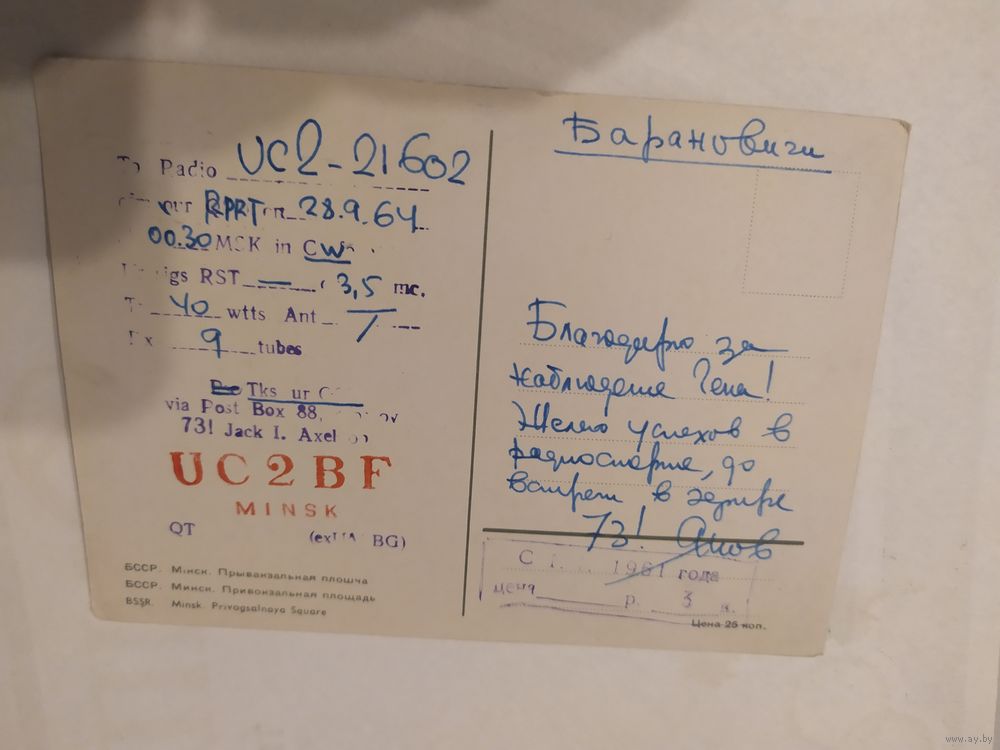 Radio UC2-21602
ur RPRT on 28.9.64
00.30 MSK in CW
sigs RST — 3,5 mc.
40 wtts Ant
9 tubes
Tks ur
via Post Box 88,
73! Jack I. Axel
UC2BF
MINSK
QT
(ex BG)
БССР. Мінск. Прывакзальная плошча
БССР. Минск. Привокзальная площадь
BSSR. Minsk. Privogsalnaya Square
Барановичи
Благодарю за
наблюдение Гена!
Желаю успехов в
радиоспорте, до
встречи в эфире
73!
С 1. 1961 года
цена р. 3 к.
Цена 25 коп.
www.ay.by